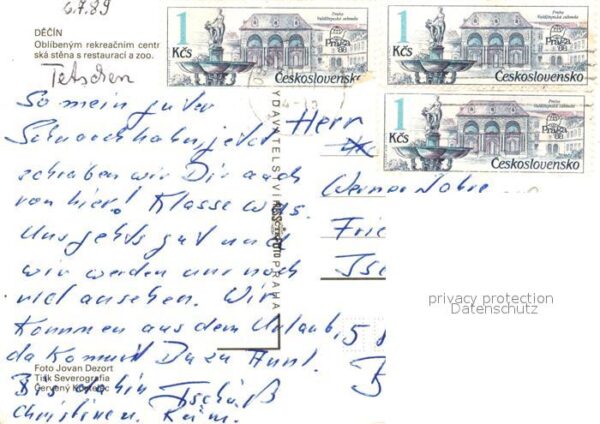 6.7.89
DĚČÍN
Oblíbeným rekreačním centr
ská stěna s restaurací a zoo.
Tetschen
1 Kčs
Praha
Valdštejnská zahrada
Praga 88
Československo
1 Kčs
Praha
Valdštejnská zahrada
Praga 88
Československo
1 Kčs
Praha
Valdštejnská zahrada
Praga 88
Československo
So mein guter
jetzt
schreiben wir Dir auch
von hier! Klasse was.
Uns gehts gut und
wir werden uns noch
viel ansehen. Wir
kommen aus dem Urlaub,
da kommst Du zu
Bis dahin Tschüß
Christinen.
Herr
Werner
Frie
5
B
VYDAVATELSTVÍ
PRAHA
Foto Jovan Dezort
Tisk Severografia
Červený Kostelec
privacy protection
Datenschutz